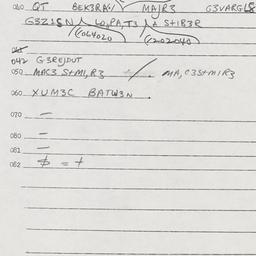 040 QT BEK3RAG/ MAJR3 G3VARGL&
G3Z1SN / LO,PA,T3 / A S+1B3R
(064020 (202040
042 G3REJDUT
050 MAC3 S+M1,R3 +/. MA,C3S+M1R3
060 XUM3C BATW3N .
070 —
080 —
081 —
082 $ = +